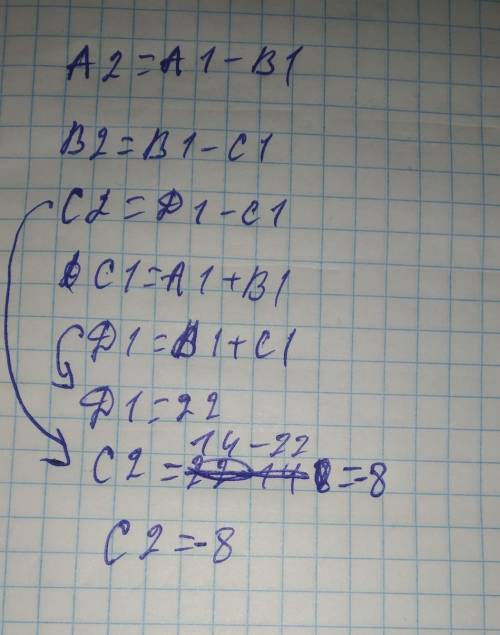 A2=A1-B1
B2=B1-C1
C2=D1-C1
C1=A1+B1
D1=B1+C1
D1=22
14-22
C2=22-14 8=-8
C2=-8